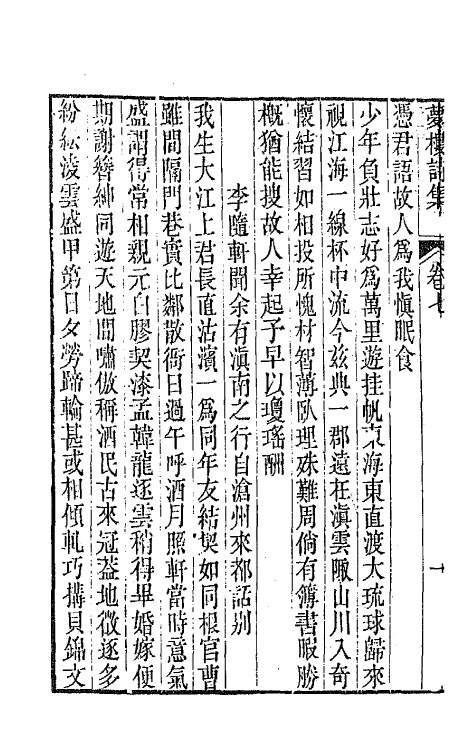 夢樓詩集　卷七　十
憑君語故人爲我愼眠食
少年負壯志好爲萬里遊挂帆東海東直渡大琉球歸來
視江海一線杯中流今兹典一郡遠在滇雲陬山川入奇
懷結習如相投所愧材智薄臥理殊難周倘有簿書暇勝
概猶能搜故人幸起予早以瓊瑤酬
李隨軒聞余有滇南之行自滄州來都話别
我生大江上君長直沽濱一爲同年友結契如同根官曹
雖間隔門巷實比鄰散衙日過午呼酒月照軒當時意氣
盛謂得常相親元白膠契漆孟韓龍逐雲稍得畢婚嫁便
期謝簪紳同遊天地間嘯傲稱酒民古來冠葢地徵逐多
紛紜淩雲盛甲第日夕勞蹄輪甚或相傾軋巧搆貝錦文